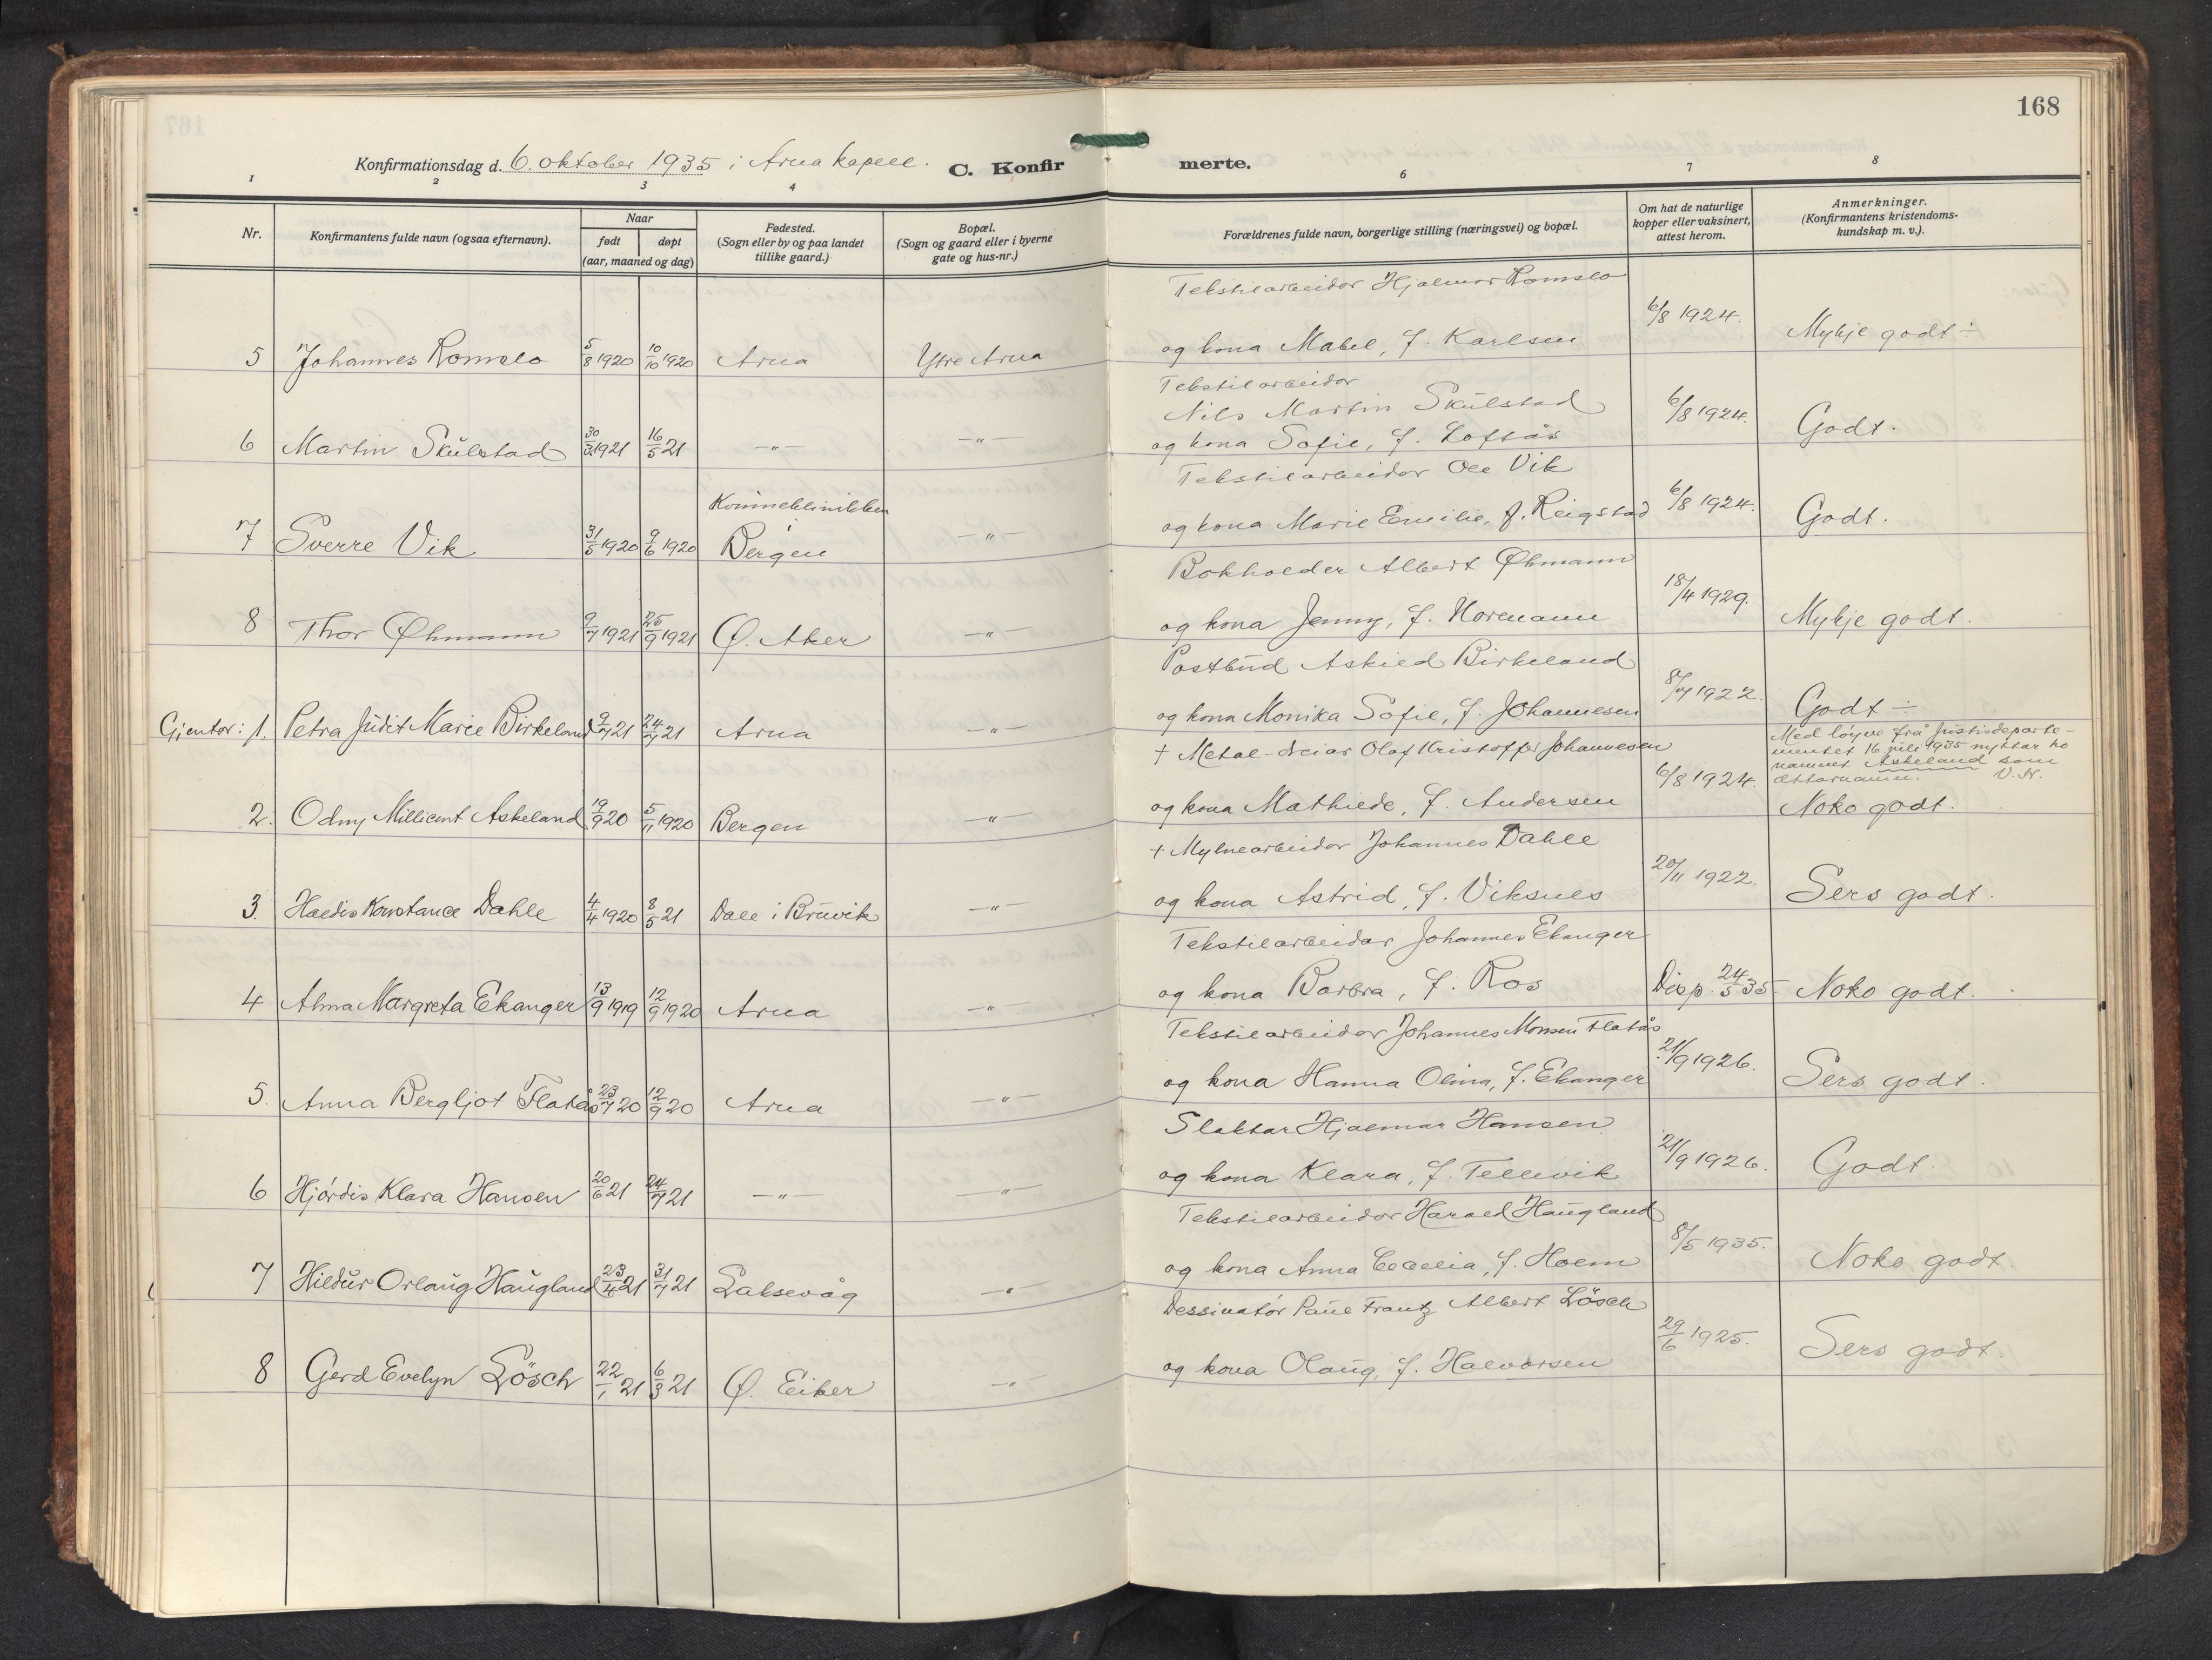 168
Konfirmationsdag d. 6. oktober 1935 i Arna kapell. C. Konfirmerte.
1 2 3 4 6 7 8
Nr.
Konfirmantens fulde navn (ogsaa efternavn).
Naar
født døpt
(aar, maaned og dag)
Fødested.
(Sogn eller by og paa landet
tillike gaard.)
Bopæl.
(Sogn og gaard eller i byerne
gate og hus-nr.)
Forældrenes fulde navn, borgerlige stilling (næringsvei) og bopæl.
Om hat de naturlige
kopper eller vaksinert,
attest herom.
Anmerkninger.
(Konfirmantens kristendoms-
kundskap m. v.).
Tekstilarbeidar Hjalmar Romslo
5 Johannes Romslo 5/8 1920 10/10 1920 Arna Ytre Arna og kona Mabel, f. Karlsen 6/8 1924. Mykje godt ÷
Tekstilarbeidar
Nils Martin Skulstad
6 Martin Skulstad 30/3 1921 16/5 21 —"— —"— og kona Sofie, f. Loftås 6/8 1924. Godt.
Tekstilarbeidar Ole Vik
Kvinneklinikken
i
7 Sverre Vik 31/5 1920 9/6 1920 Bergen —"— og kona Marie Emilie, f. Reigstad 6/8 1924. Godt.
Bokholder Albert Øhmann
8 Thor Øhmann 9/7 1921 25/9 1921 Ø. Aker —"— og kona Jenny, f. Normann 18/4 1929. Mykje godt.
Postbud Askild Birkeland
Gjentor: 1. Petra Judit Marie Birkeland 9/7 21 24/7 21 Arna —"— og kona Monika Sofie, f. Johannesen 8/7 1922. Godt ÷
+ Metal-dreiar Olaf Kristoffer Johannesen
Med løyve frå Justisdeparte-
mentet 16 juli 1935 nyttar ho
namnet Askeland som
ættarnamn. V.N.
2. Odny Millicent Askeland 19/9 20 5/11 1920 Bergen —"— og kona Mathilde, f. Andersen 6/8 1924. Noko godt.
+ Mylnearbeidar Johannes Dahle
3. Haldis Konstance Dahle 4/4 1920 8/5 21 Dale i Bruvik —"— og kona Astrid, f. Viksnes 20/11 1922. Sers godt.
Tekstilarbeidar Johannes Ekanger
4 Alma Margreta Ekanger 13/9 1919 12/9 1920 Arna —"— og kona Barbra, f. Ros Disp. 24/5 35. Noko godt.
Tekstilarbeidar Johannes Monsen Flatås
5. Anna Bergljot Flatås 23/7 20 12/9 20 Arna —"— og kona Hanna Olina, f. Ekanger 21/9 1926. Sers godt.
Slaktar Hjalmar Hansen
6 Hjördis Klara Hansen 20/6 21 24/7 21 —"— —"— og kona Klara, f. Tellevik 21/9 1926. Godt.
Tekstilarbeidar Harald Haugland
7 Hildur Orlaug Haugland 23/4 21 31/7 21 Laksevåg —"— og kona Anna Cecelia, f. Holm 8/5 1935. Noko godt.
Dessinatör Paul Frantz Albert Lösch
8 Gerd Evelyn Lösch 22/1 21 6/3 21 Ø. Eiker —"— og kona Olaug, f. Halvorsen 29/6 1925. Sers godt.